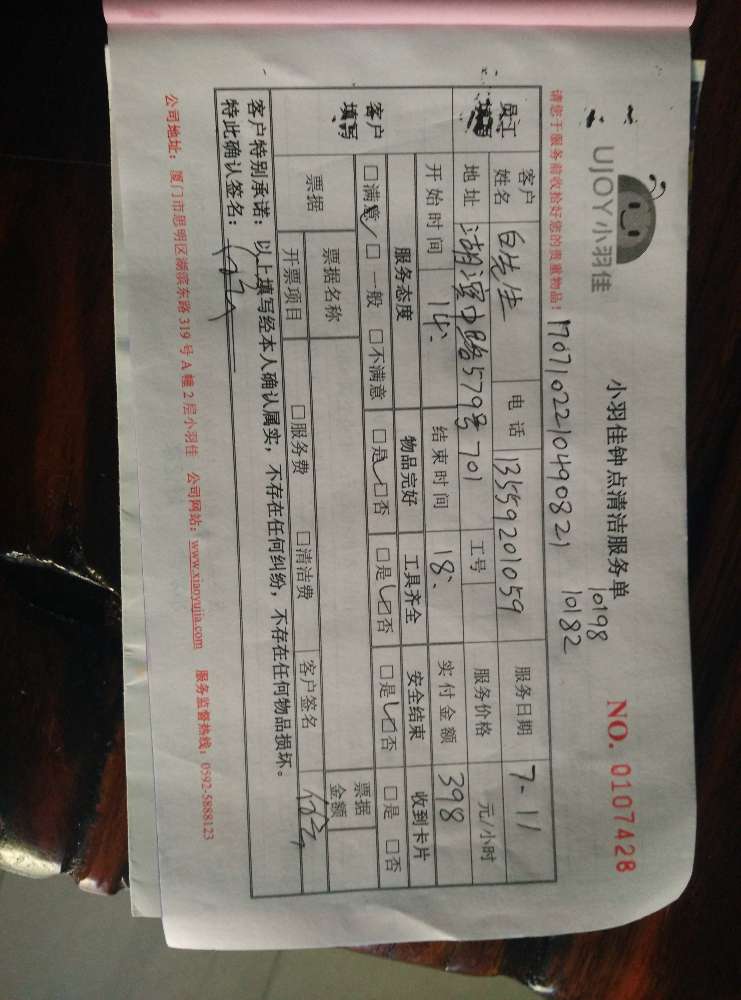 UJOY 小羽佳
小羽佳钟点清洁服务单
NO. 0107428
10198
10182
请您于服务前收拾好您的贵重物品！
1707102210490821
员工
填写
客户姓名 白先生 电话 13559201059 服务日期 7-11
地址 湖滨中路579号701 工号 服务价格 元/小时
开始时间 14： 结束时间 18： 实付金额 398
客户填写
服务态度 物品完好 工具齐全 安全结束 收到卡片
□满意 □一般 □不满意 □是 □否 □是 □否 □是 □否 □是 □否
票据 票据名称 票据金额
开票项目 □服务费 □清洁费 客户签名
客户特别承诺：以上填写经本人确认属实，不存在任何纠纷，不存在任何物品损坏。
特此确认签名：
公司地址：厦门市思明区湖滨东路319号A幢2层小羽佳 公司网站：www.xiaoyujia.com 服务监督热线：0592-5888123